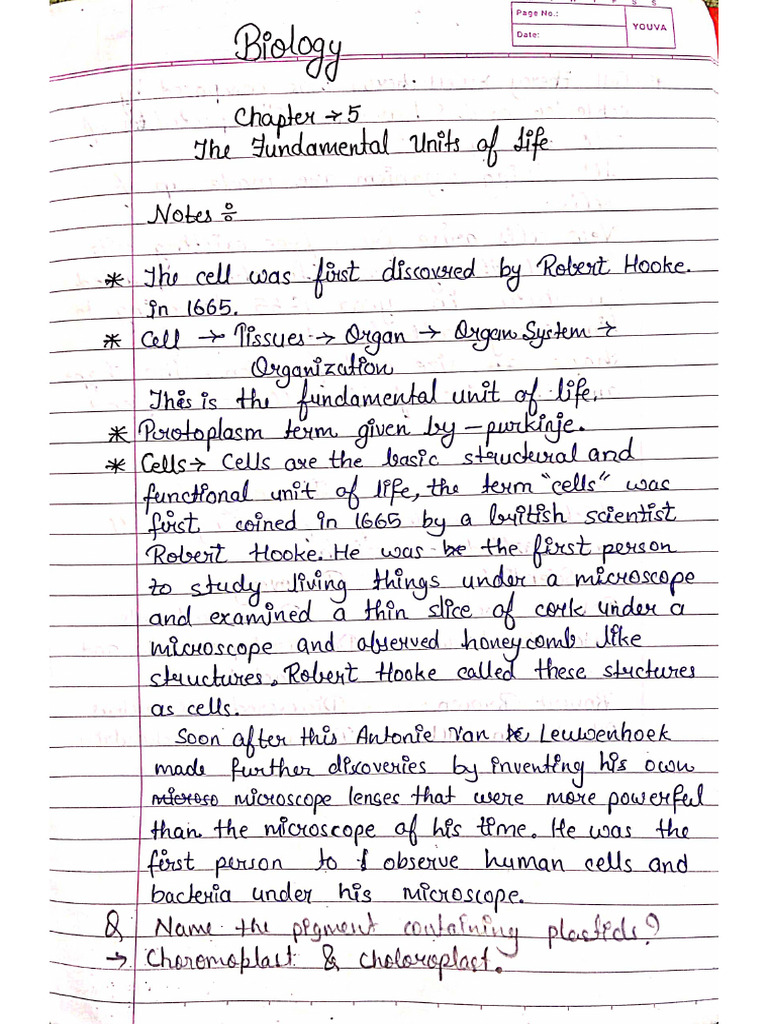 Page No.:
YOUVA
Date:
Biology
Chapter → 5
The Fundamental Units of Life
Notes ÷
* The cell was first discovred by Robert Hooke.
in 1665.
* Cell → Tissues → Organ → Organ System →
Organization
This is the fundamental unit of life.
* Protoplasm term given by - purkinje.
* Cells → Cells are the basic structural and
functional unit of life, the term "cells" was
first coined in 1665 by a british scientist
Robert Hooke. He was be the first person
to study living things under a microscope
and examined a thin slice of cork under a
microscope and observed honeycomb like
structures. Robert Hooke called these structures
as cells.
Soon after this Antonie Van Leuwenhoek
made further discoveries by inventing his own
microso microscope lenses that were more powerful
than the microscope of his time. He was the
first person to observe human cells and
bacteria under his microscope.
Q Name the pigment containing plastids?
→ Choromoplast & choloroplast.